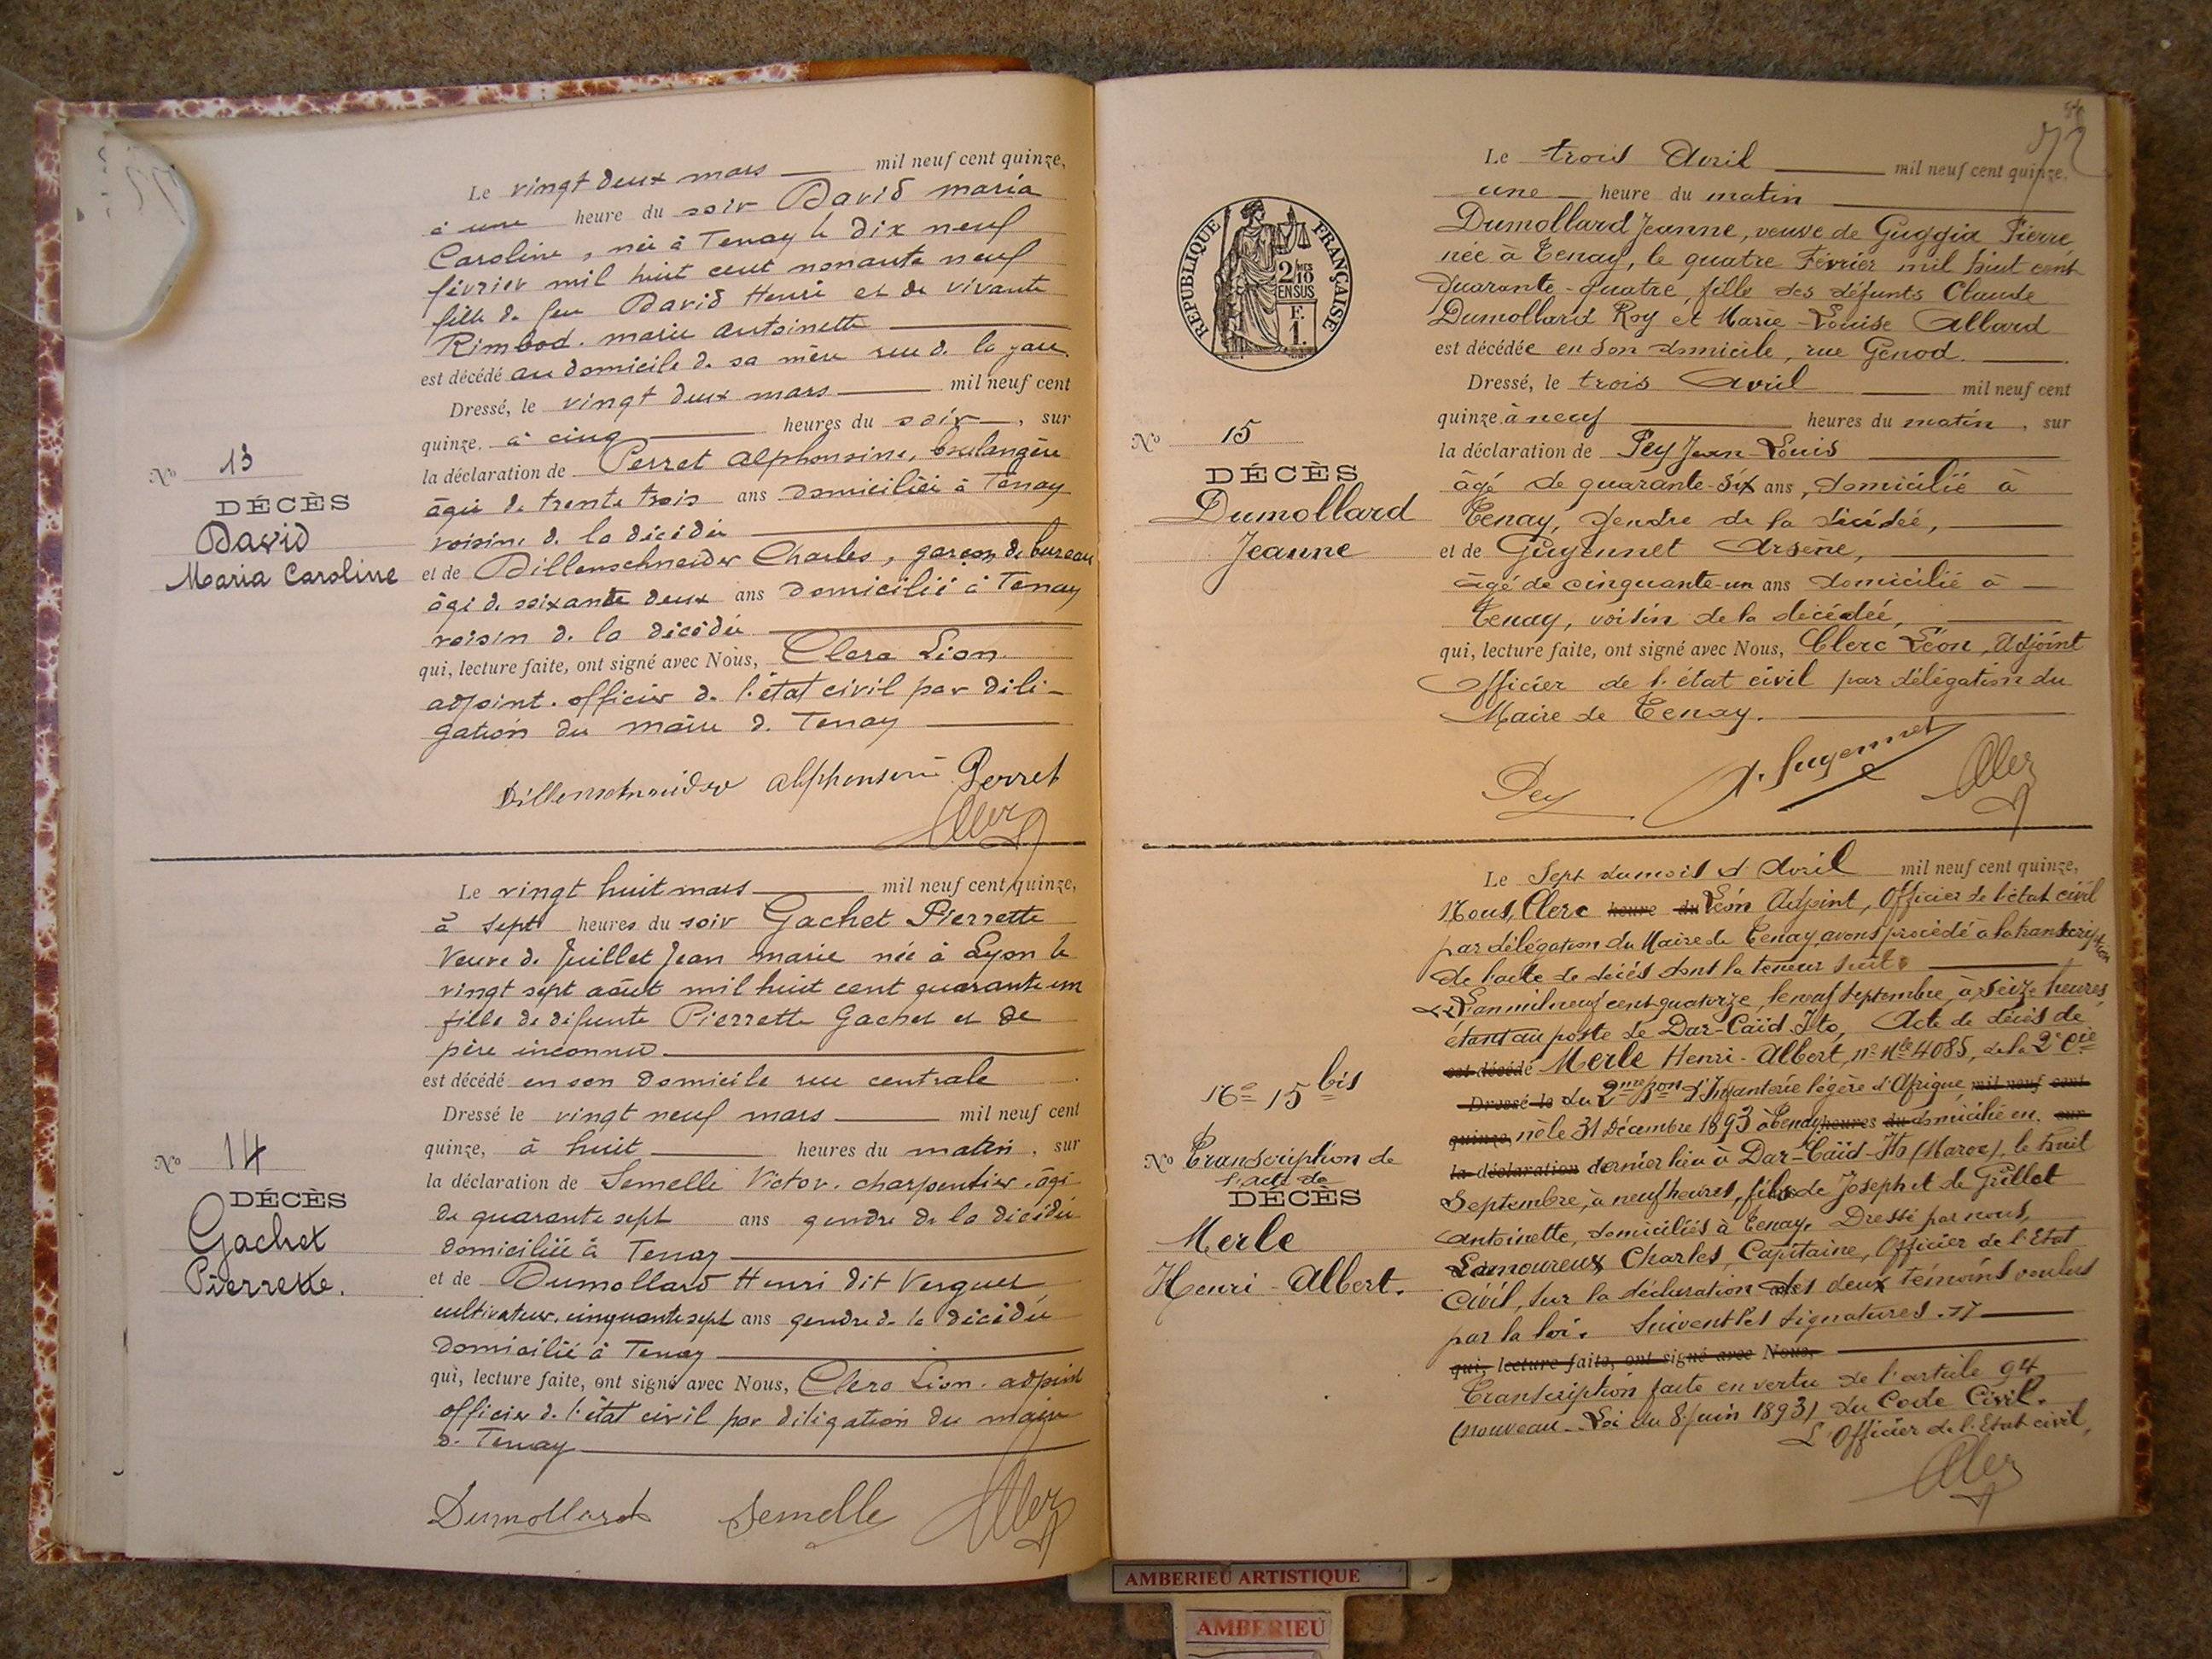 Le vingt deux mars mil neuf cent quinze,
à une heure du soir David Maria
Caroline, née à Tenay le dix neuf
février mil huit cent nonante neuf
fille de feu David Henri et de vivante
Rimbod. marie antoinette
est décédé au domicile de sa mère rue de la gare.
Dressé, le vingt deux mars mil neuf cent
quinze, à cinq heures du soir, sur
la déclaration de Perret Alphonsine, boulangère
âgée de trente trois ans domiciliée à Tenay
voisine de la décédée
et de Dillenschneider Charles, garçon de bureau
âgé de soixante deux ans domicilié à Tenay
voisin de la décédée
qui, lecture faite, ont signé avec Nous, Clerc Léon.
adjoint. officier de l'état civil par délé-
gation du maire de Tenay
Dillenschneider Alphonsine Perret
Clerc
No 13
DÉCÈS
David
Maria Caroline
Le vingt huit mars mil neuf cent quinze,
à sept heures du soir Gachet Pierrette
Veuve de Juillet Jean marie née à Lyon le
vingt sept août mil huit cent quarante un
fille de défunte Pierrette Gachet et de
père inconnu
est décédé en son domicile rue centrale
Dressé le vingt neuf mars mil neuf cent
quinze, à huit heures du matin, sur
la déclaration de Semelle Victor. charpentier. âgé
de quarante sept ans gendre de la décédée
domiciliée à Tenay
et de Dumollard Henri dit Verguet
cultivateur, cinquante sept ans gendre de la décédée
domicilié à Tenay
qui, lecture faite, ont signé avec Nous, Clerc Léon. adjoint
officier de l'état civil par délégation du maire
de Tenay
Dumollard Semelle Clerc
No 14
DÉCÈS
Gachet
Pierrette.
RÉPUBLIQUE FRANÇAISE
2/10 EN SUS
F. 1.
Le trois Avril mil neuf cent quinze,
une heure du matin
Dumollard Jeanne, veuve de Guggia Pierre,
née à Tenay, le quatre Février mil huit cent
quarante-quatre, fille des défunts Claude
Dumollard Roy et Marie-Louise Allard
est décédée en son domicile, rue Génod.
Dressé, le trois Avril mil neuf cent
quinze à neuf heures du matin, sur
la déclaration de Pey Jean-Louis
âgé de quarante-six ans, domicilié à
Tenay, gendre de la décédée,
et de Gugennet Arsène,
âgé de cinquante-un ans domicilié à
Tenay, voisin de la décédée,
qui, lecture faite, ont signé avec Nous, Clerc Léon, Adjoint
Officier de l'état civil par délégation du
Maire de Tenay.
Pey A. Gugennet Clerc
No 15
DÉCÈS
Dumollard
Jeanne
Le Sept du mois d'Avril mil neuf cent quinze,
Nous, Clerc heure du Léon Adjoint, Officier de l'état civil
par délégation du Maire de Tenay, avons procédé à la transcription
de l'acte de décès dont la teneur suit:
L'an mil neuf cent quatorze, le neuf Septembre, à seize heures
étant au poste de Dar-Caïd-Ito, Acte de décès de
est décédé Merle Henri-Albert, no Mle 4085, de la 2e Cie
Dressé le du 2me Bon d'Infanterie légère d'Afrique, mil neuf cent
quinze, né le 31 Décembre 1893 à Tenay heures du domicilié en sur
la déclaration dernier lieu à Dar-Caïd-Ito (Maroc), le huit
Septembre, à neuf heures, fils de Joseph et de Grillet
Antoinette, domiciliés à Tenay. Dressé par nous,
Lamoureux Charles, Capitaine, Officier de l'Etat
Civil, sur la déclaration des deux témoins voulus
par la loi. Suivent les signatures. "
qui, lecture faite, ont signé avec Nous,
Transcription faite en vertu de l'article 94
(nouveau - Loi du 8 Juin 1893) du Code Civil.
L'Officier de l'Etat civil,
Clerc
No 15 bis
No Transcription de
l'acte de
DÉCÈS
Merle
Henri-Albert.
AMBERIEU ARTISTIQUE
AMBERIEU